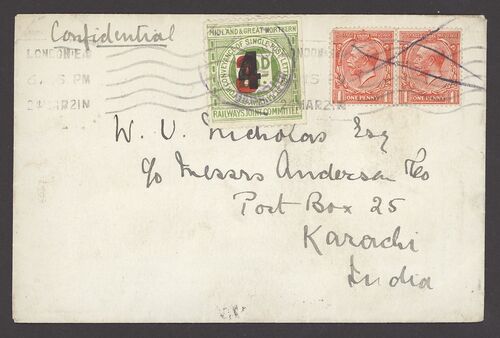 Confidential
LONDON.E.C
6. 15 PM
2 MAR 21
MIDLAND & GREAT NORTHERN
4
RAILWAYS JOINT COMMITTEE
ONE PENNY
ONE PENNY
LONDON
15 PM
2 MAR 21
W. U. Nicholas Esq
c/o Messrs Anderson & Co
Post Box 25
Karachi
India